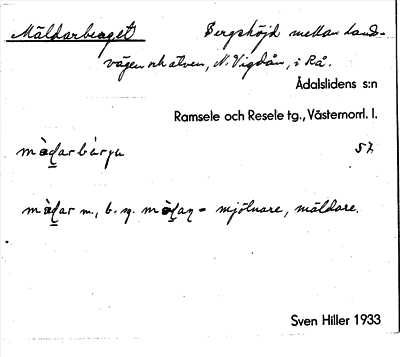 Mäldarberget Bergshöjd mellan Lands-
vägen och älven, N. Vigdån, i Rå.
Ådalslidens s:n
Ramsele och Resele tg., Västernorrl. l.
57
m., b. sg. = mjölnare, mäldare.
Sven Hiller 1933